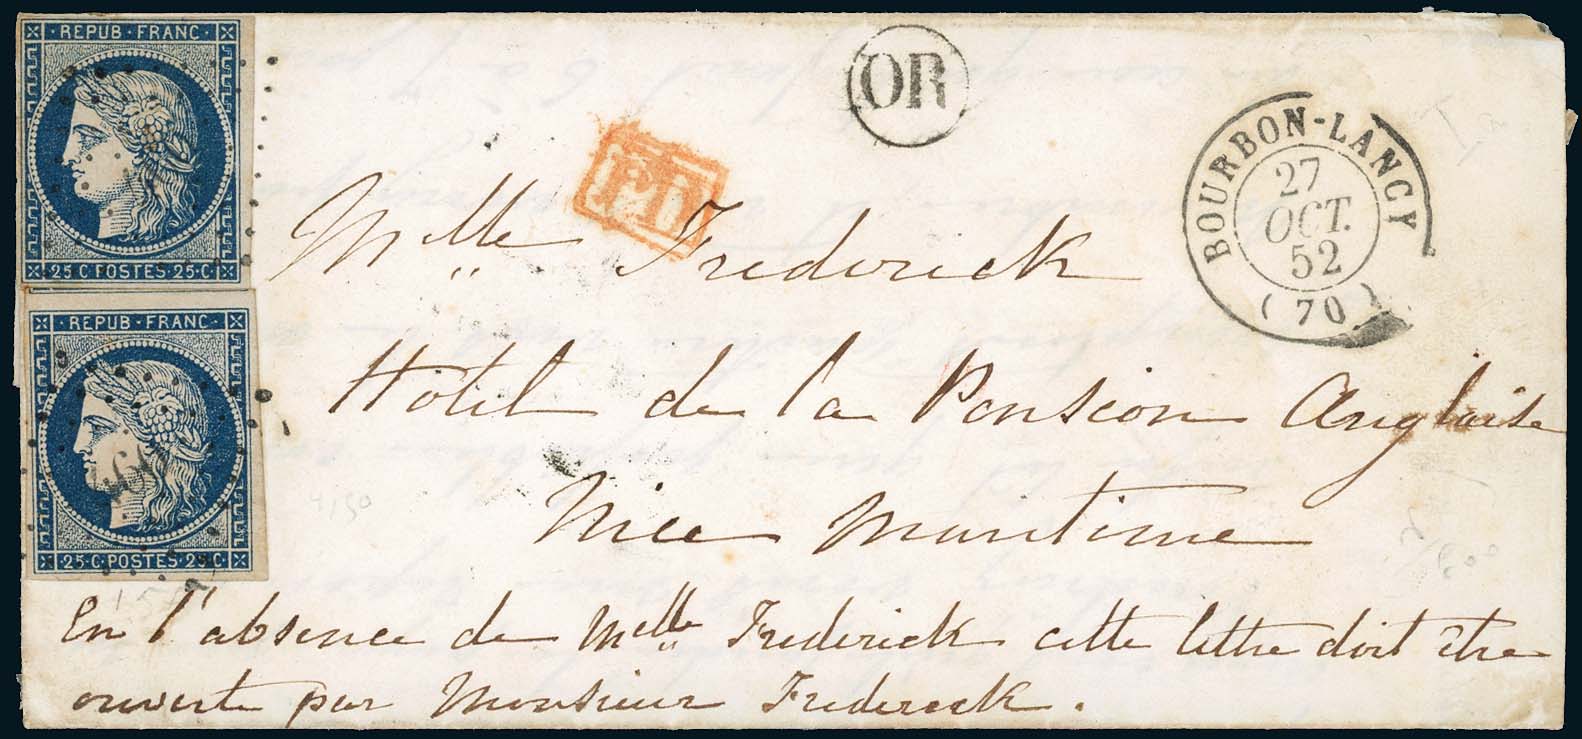 REPUB·FRANC·
25·C·POSTES·25·C·
REPUB·FRANC·
25·C·POSTES·25·C·
OR
P.D.
BOURBON-LANCY
27
OCT.
52
(70)
Melle Frederick
Hôtel de la Pension Anglaise
Nice Maritime
En l'absence de Melle Frederick cette lettre doit être
ouverte par Monsieur Frederick.